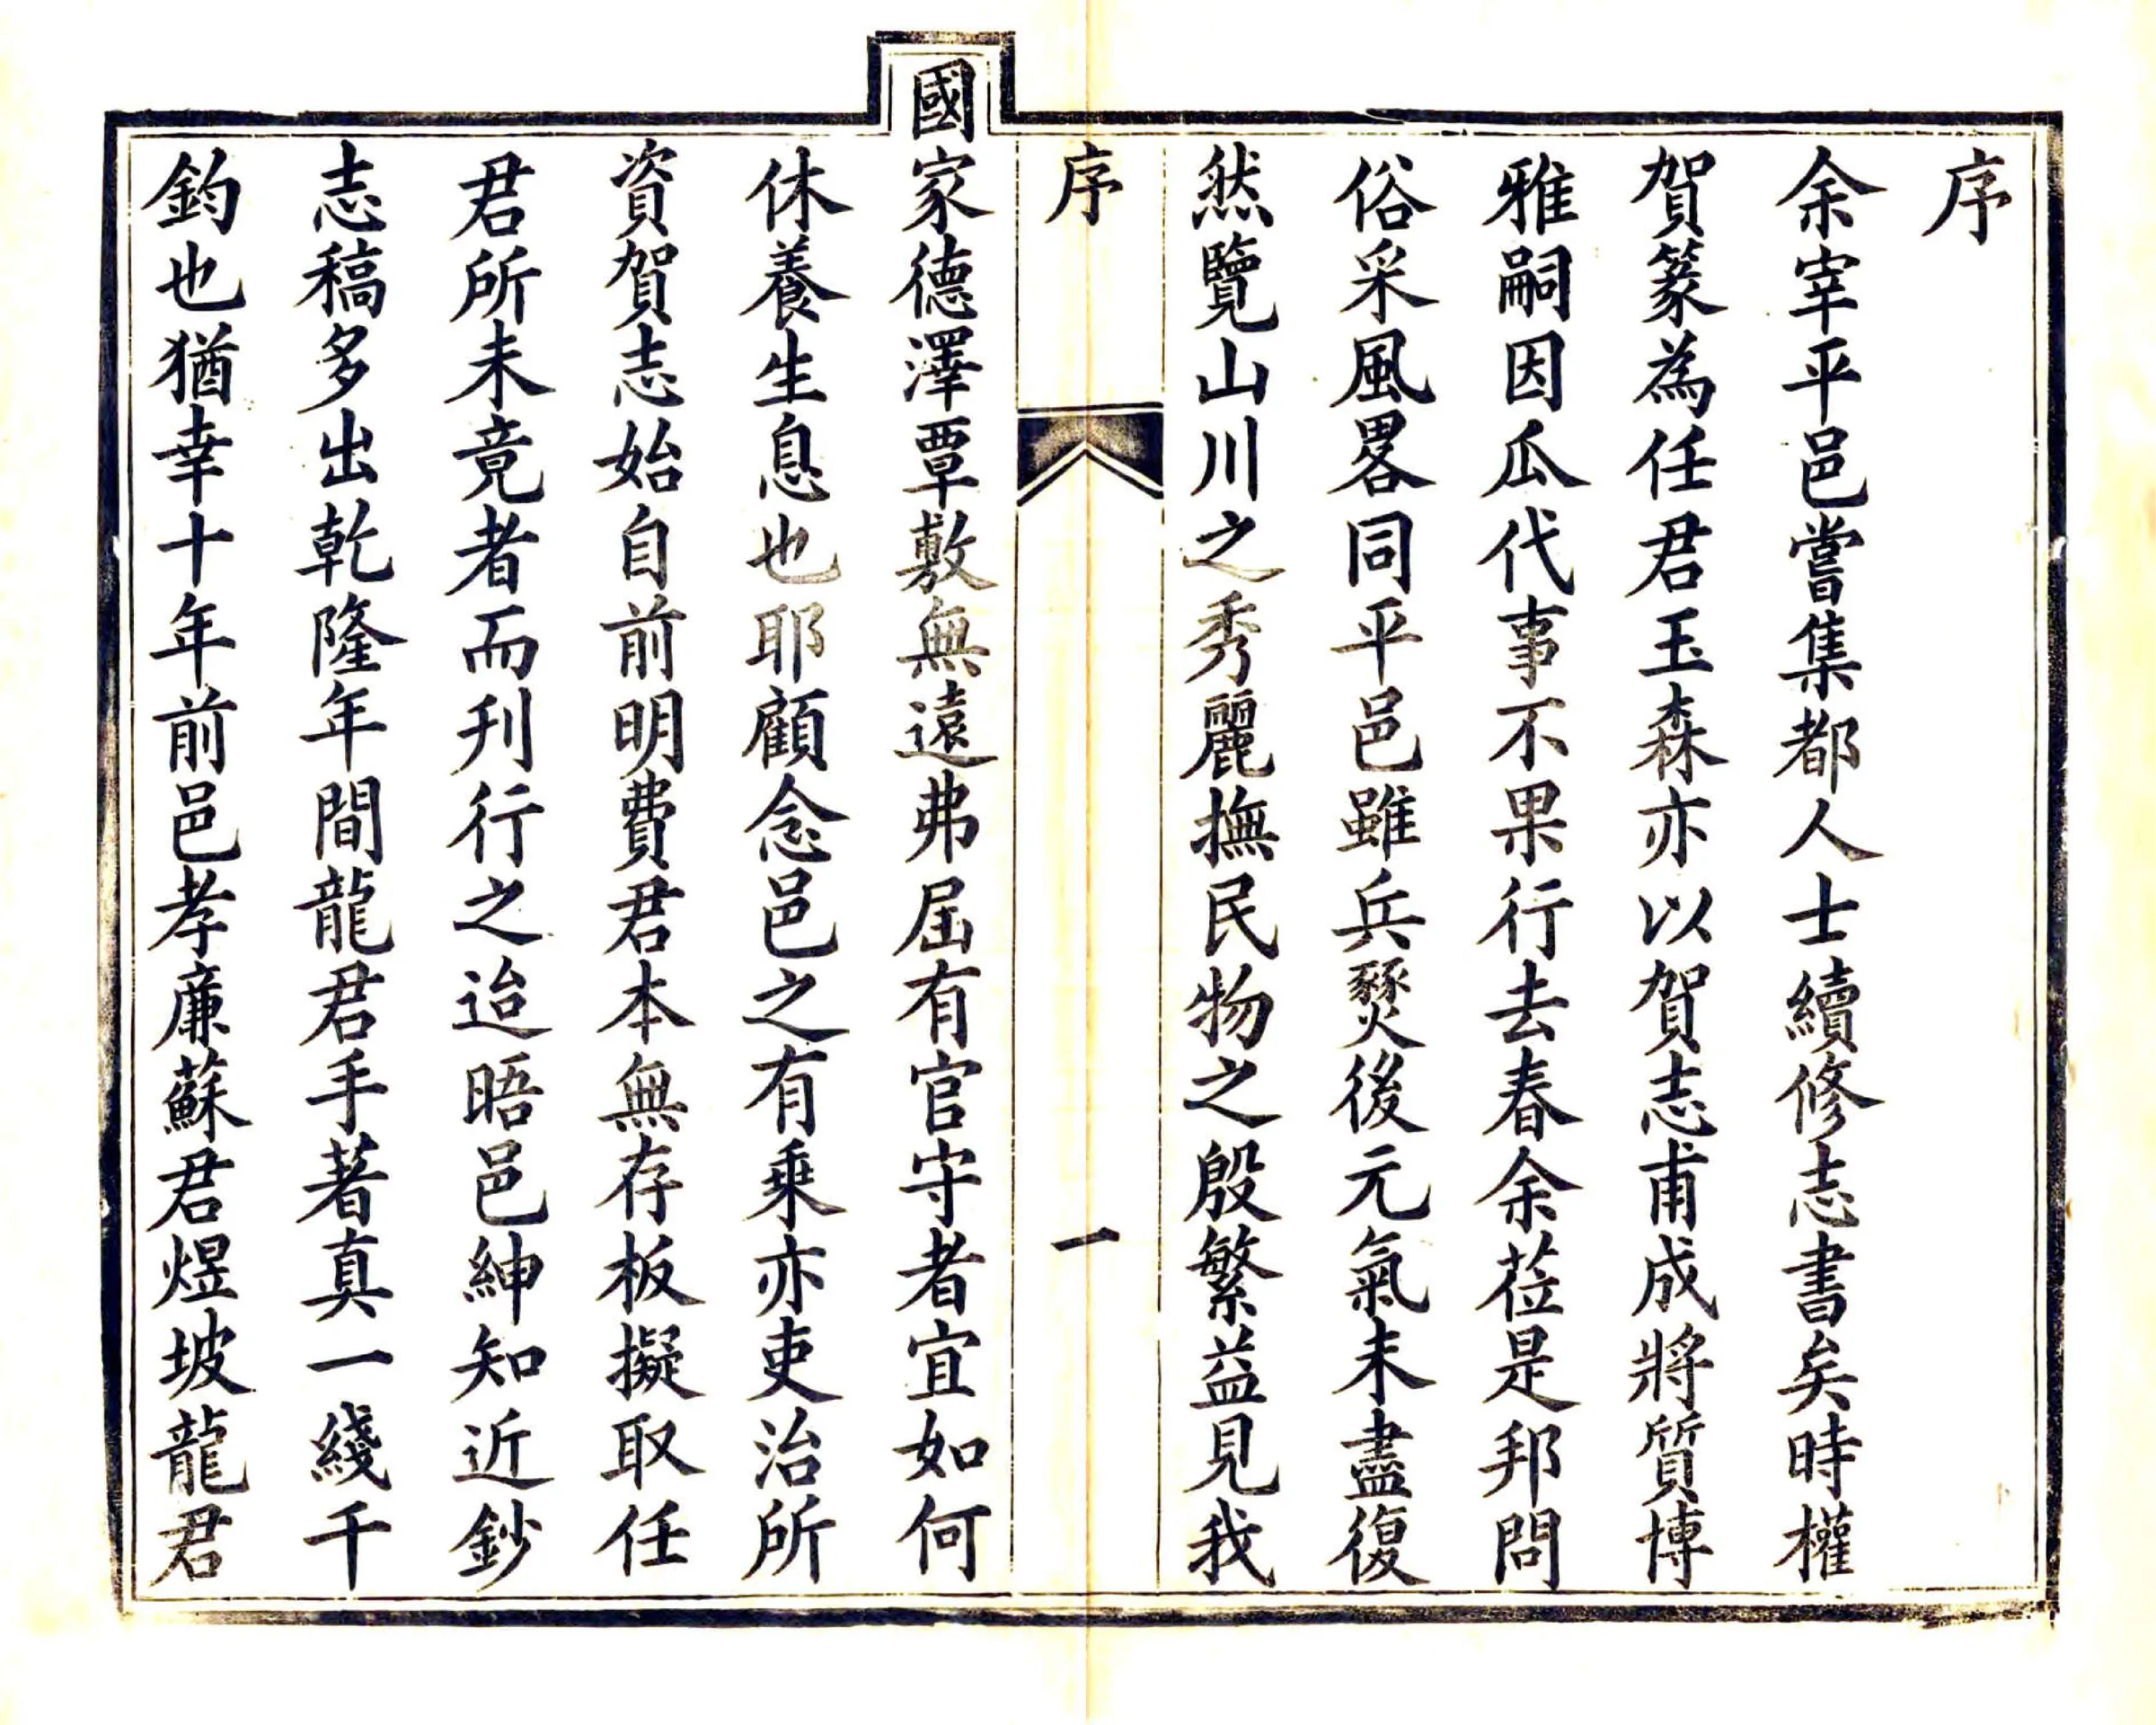 序
余宰平邑嘗集都人士續修志書矣時權
賀篆為任君玉森亦以賀志甫成將質博
雅嗣因瓜代事不果行去春余莅是邦問
俗采風畧同平邑雖兵燹後元氣未盡復
然覽山川之秀麗撫民物之殷繁益見我
序 一
國家德澤覃敷無遠弗屆有官守者宜如何
休養生息也耶顧念邑之有乘亦吏治所
資賀志始自前明費君本無存板擬取任
君所未竟者而刋行之迨晤邑紳知近鈔
志稿多出乾隆年間龍君手著真一綫千
鈞也猶幸十年前邑孝廉蘇君煜坡龍君